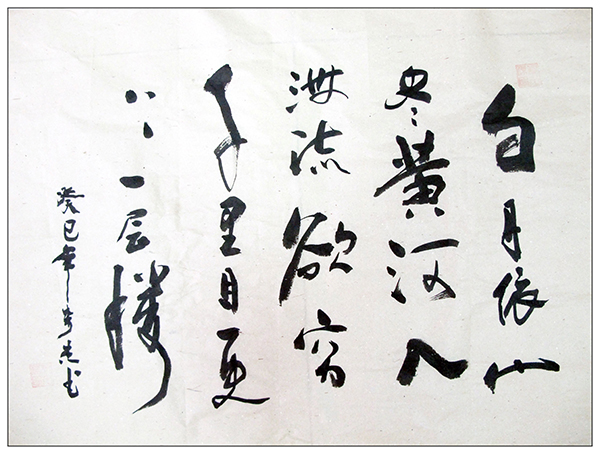 白日依山
尽黄河入
海流欲穷
千里目更
上一层楼
癸巳年